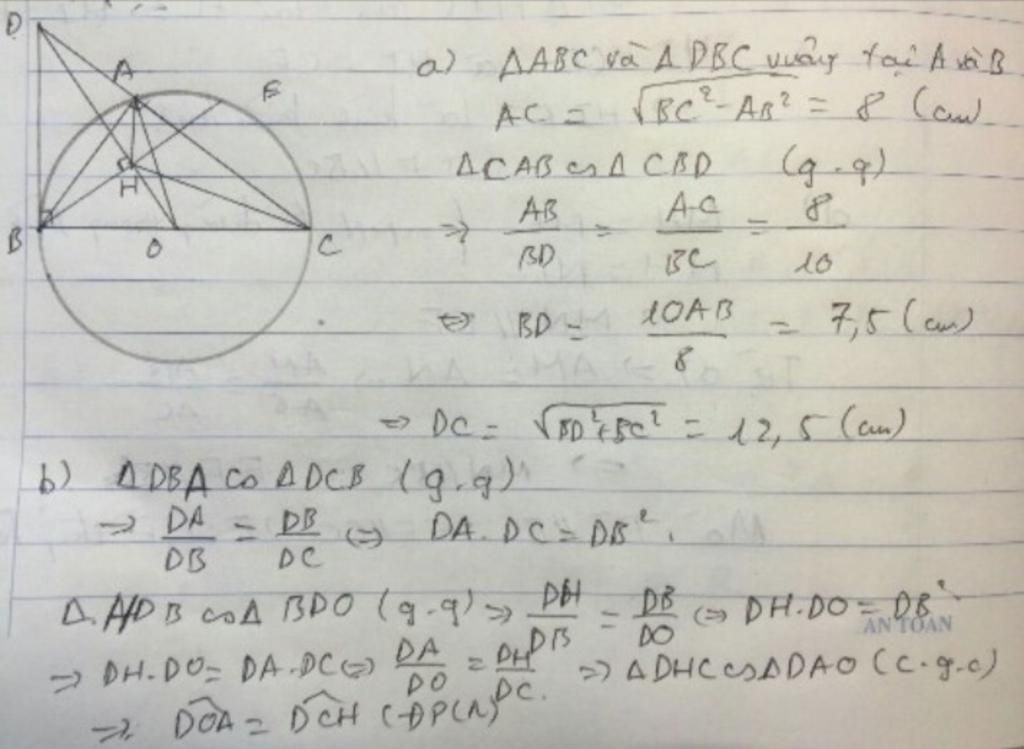 D
A
E
H
B
O
C
a) ΔABC và ΔDBC vuông tại A và B
AC = √(BC² - AB²) = 8 (cm)
ΔCAB ∽ ΔCBD (g.g)
⇒ AB/BD = AC/BC = 8/10
⇔ BD = 10AB/8 = 7,5 (cm)
⇒ DC = √(BD² + BC²) = 12,5 (cm)
b) ΔDBA ∽ ΔDCB (g.g)
⇒ DA/DB = DB/DC ⇔ DA.DC = DB².
Δ.HDB ∽ Δ BDO (g.g) ⇒ DH/DB = DB/DO ⇔ DH.DO = DB²
AN TOAN
⇒ DH.DO = DA.DC ⇔ DA/DO = DH/DC. ⇒ ΔDHC ∽ ΔDAO (c.g.c)
⇒ DOA = DCH (ĐPCM)